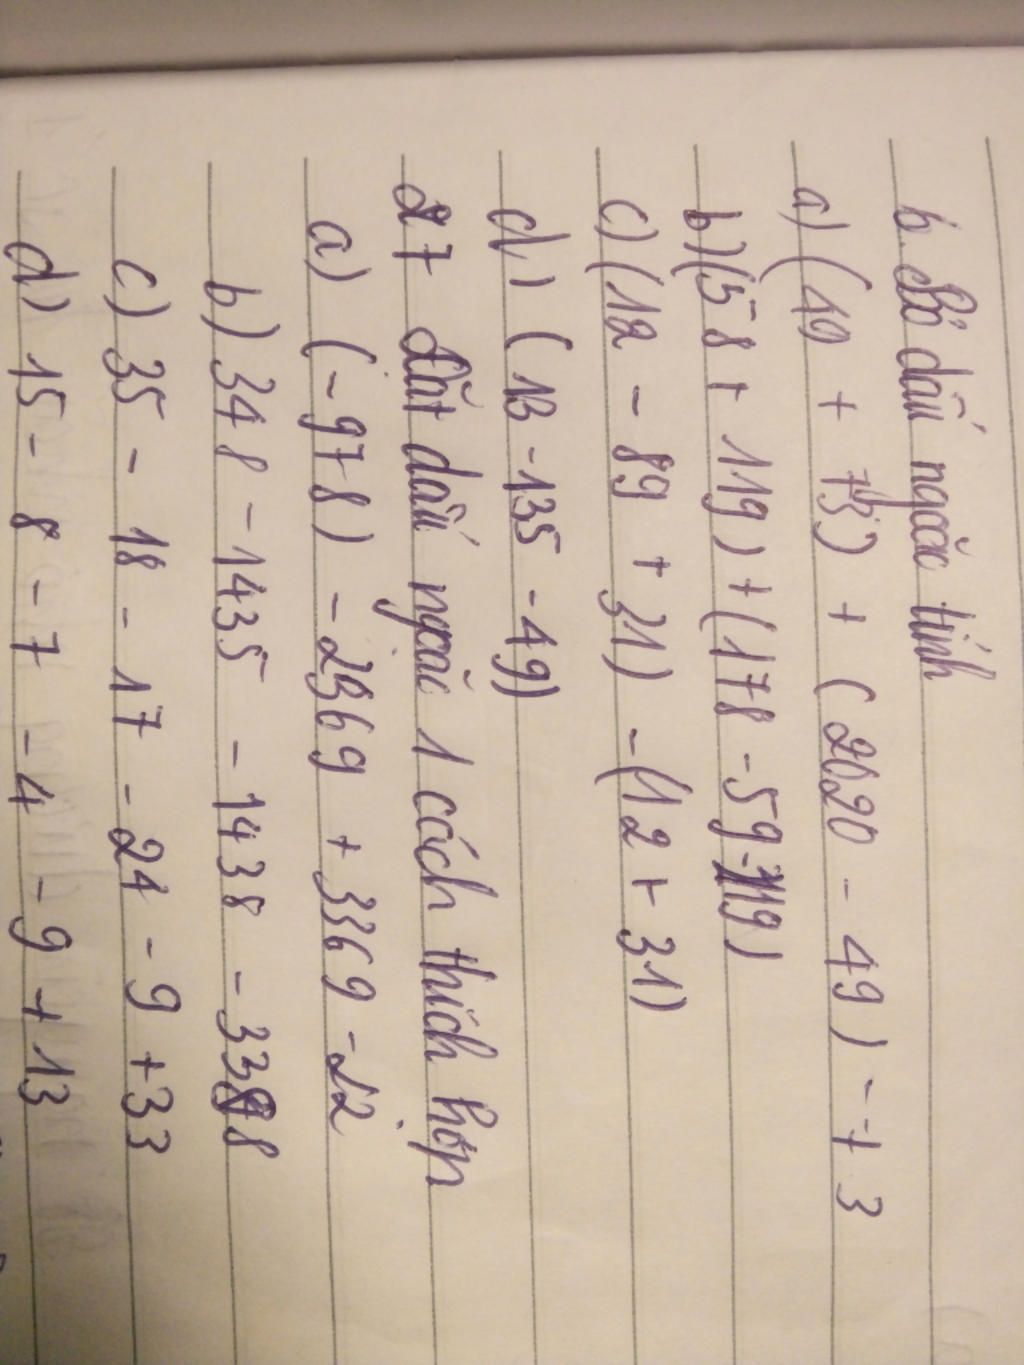 6. Bỏ dấu ngoặc tính
a) (49 + 73) + (2020 - 49) - 73
b) (58 + 119) + (178 - 59 - 119)
c) (12 - 89 + 31) - (12 + 31)
d,) (13 - 135 - 49)
27 Đặt dấu ngoặc 1 cách thích hợp
a) (-978) - 2369 + 3369 - 22
b) 348 - 1435 - 1438 - 3398
c) 35 - 18 - 17 - 24 - 9 + 33
d) 15 - 8 - 7 - 4 - 9 + 13